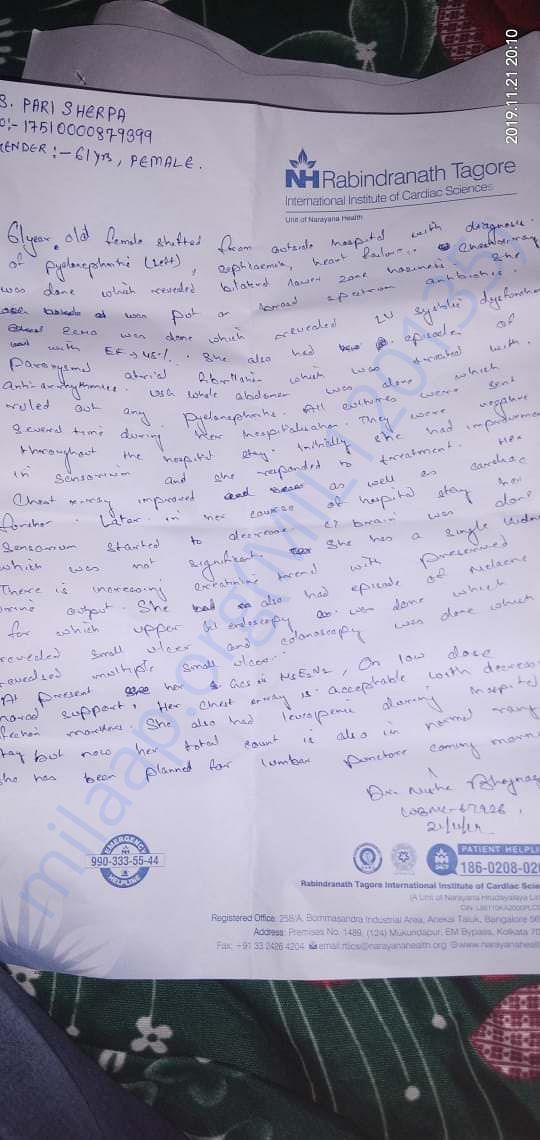 2019.11.21 20:10
S. PARI SHERPA
D:- 17510000879399
GENDER:- 61yrs, FEMALE.
NH Rabindranath Tagore
International Institute of Cardiac Sciences
Unit of Narayana Health
61 year old female shifted from outside hospital with diagnosis
of pyelonephritis (Left), heart failure.
was done which revealed bilateral lower zone haziness. She
was put on broad spectrum antibiotic.
Echo was done which revealed LV systolic dysfunction
with EF → 45%. She also had episodes of
Paroxysmal atrial fibrillation which was treated with
anti arrhythmics. USG whole abdomen was done which
ruled out any pyelonephritis. All cultures were sent
several time during her hospitalisation. They were negative
throughout the hospital stay. Initially she had improvement
in sensorium and she responded to treatment. Her
Chest xray improved as well as cardiac
function. Later in her course of hospital stay her
sensorium started to decrease. CT brain was done
which was not significant. She has a single kidney
There is increasing creatinine trend with preserved
urine output. She also had episode of melaena
for which upper GI endoscopy was done which
revealed small ulcer and colonoscopy was done which
revealed multiple small ulcer.
At present her GCS is , On low dose
norad support, Her chest xray is acceptable with decrease
fection markers. She also had leucopenia during hospital
tay but now her total count is also in normal rang
She has been planned for lumbar puncture coming morn
Dr. Nisha
WBMC-67926,
21/11/19
EMERGENCY
990-333-55-44
HELPLINE
PATIENT HELPLI
186-0208-020
Rabindranath Tagore International Institute of Cardiac Scie
(A Unit of Narayana Hrudayalaya Lim
Registered Office: 258/A, Bommasandra Industrial Area, Anekal Taluk, Bangalore 56
Address: Premises No. 1489, (124) Mukundapur, EM Bypass, Kolkata 70
Fax: +91 33 2426 4204 email.rtiics@narayanahealth.org www.narayanaheal